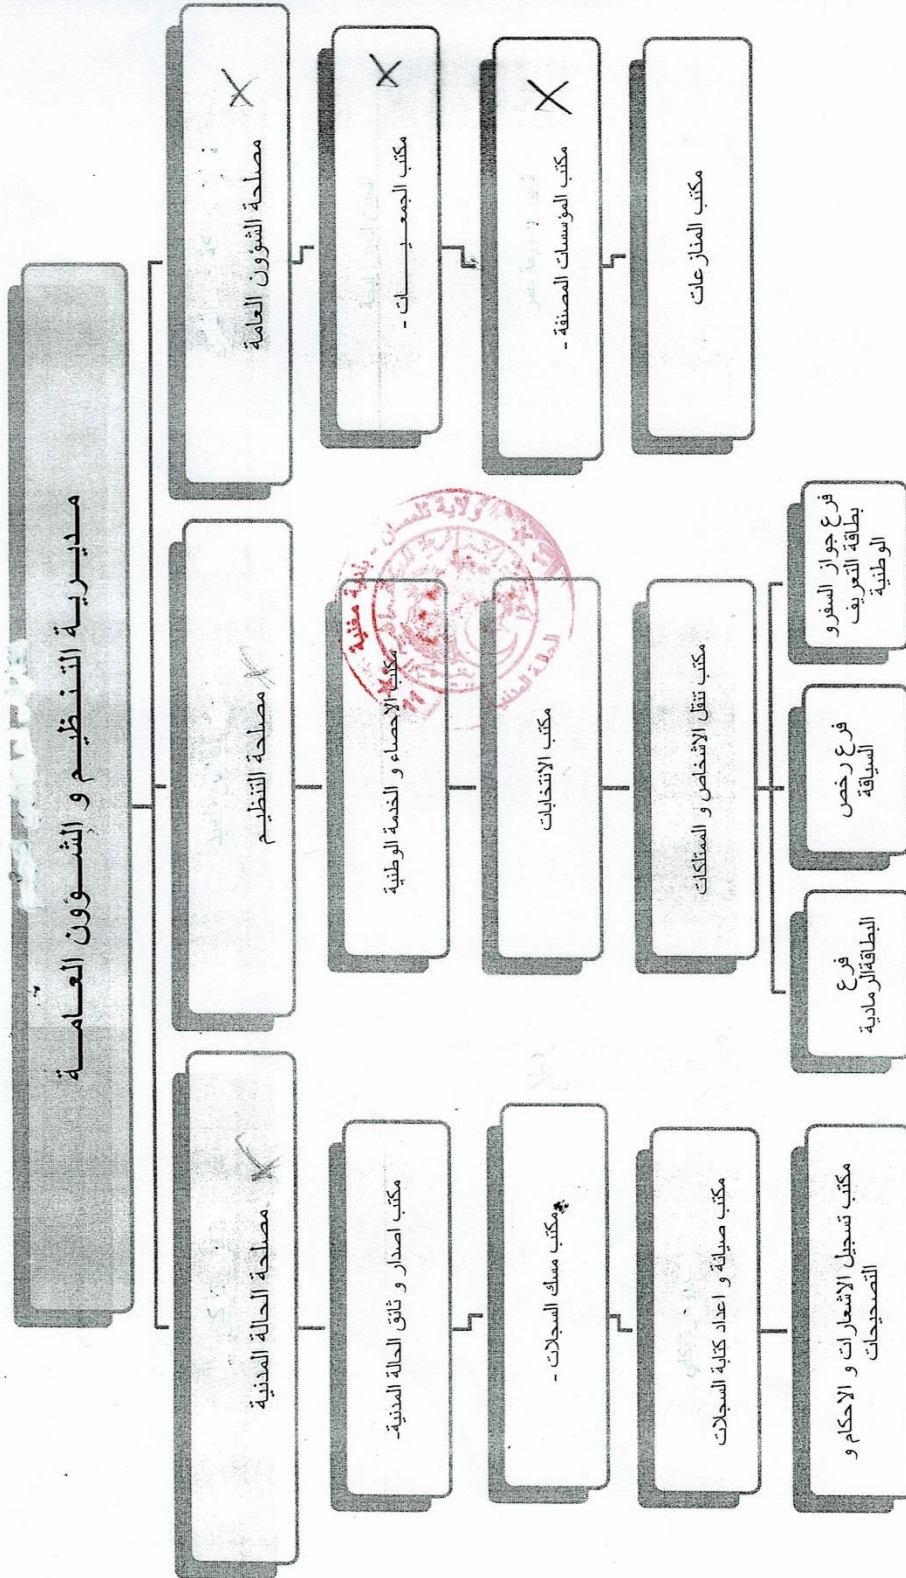 مـديـريـة التـنـظـيـم و الشـؤون العـامـة
مصلحة الشؤون العامة
مكتب الجمعيـــــــات -
مكتب المؤسسات المصنفة -
مكتب المنازعات
مصلحة التنظيم
مكتب الاحصاء و الخدمة الوطنية
مكتب الانتخابات
مكتب تنقل الاشخاص و الممتلكات
فرع جواز السفر و
بطاقة التعريف
الوطنية
فرع رخص
السياقة
فرع
البطاقة الرمادية
مصلحة الحالة المدنية
مكتب اصدار و ثائق الحالة المدنية-
مكتب مسك السجلات -
مكتب صيانة و اعداد كتابة السجلات
مكتب تسجيل الاشعارات و الاحكام و
التصحيحات
ولاية تلمسان - بلدية مغنية